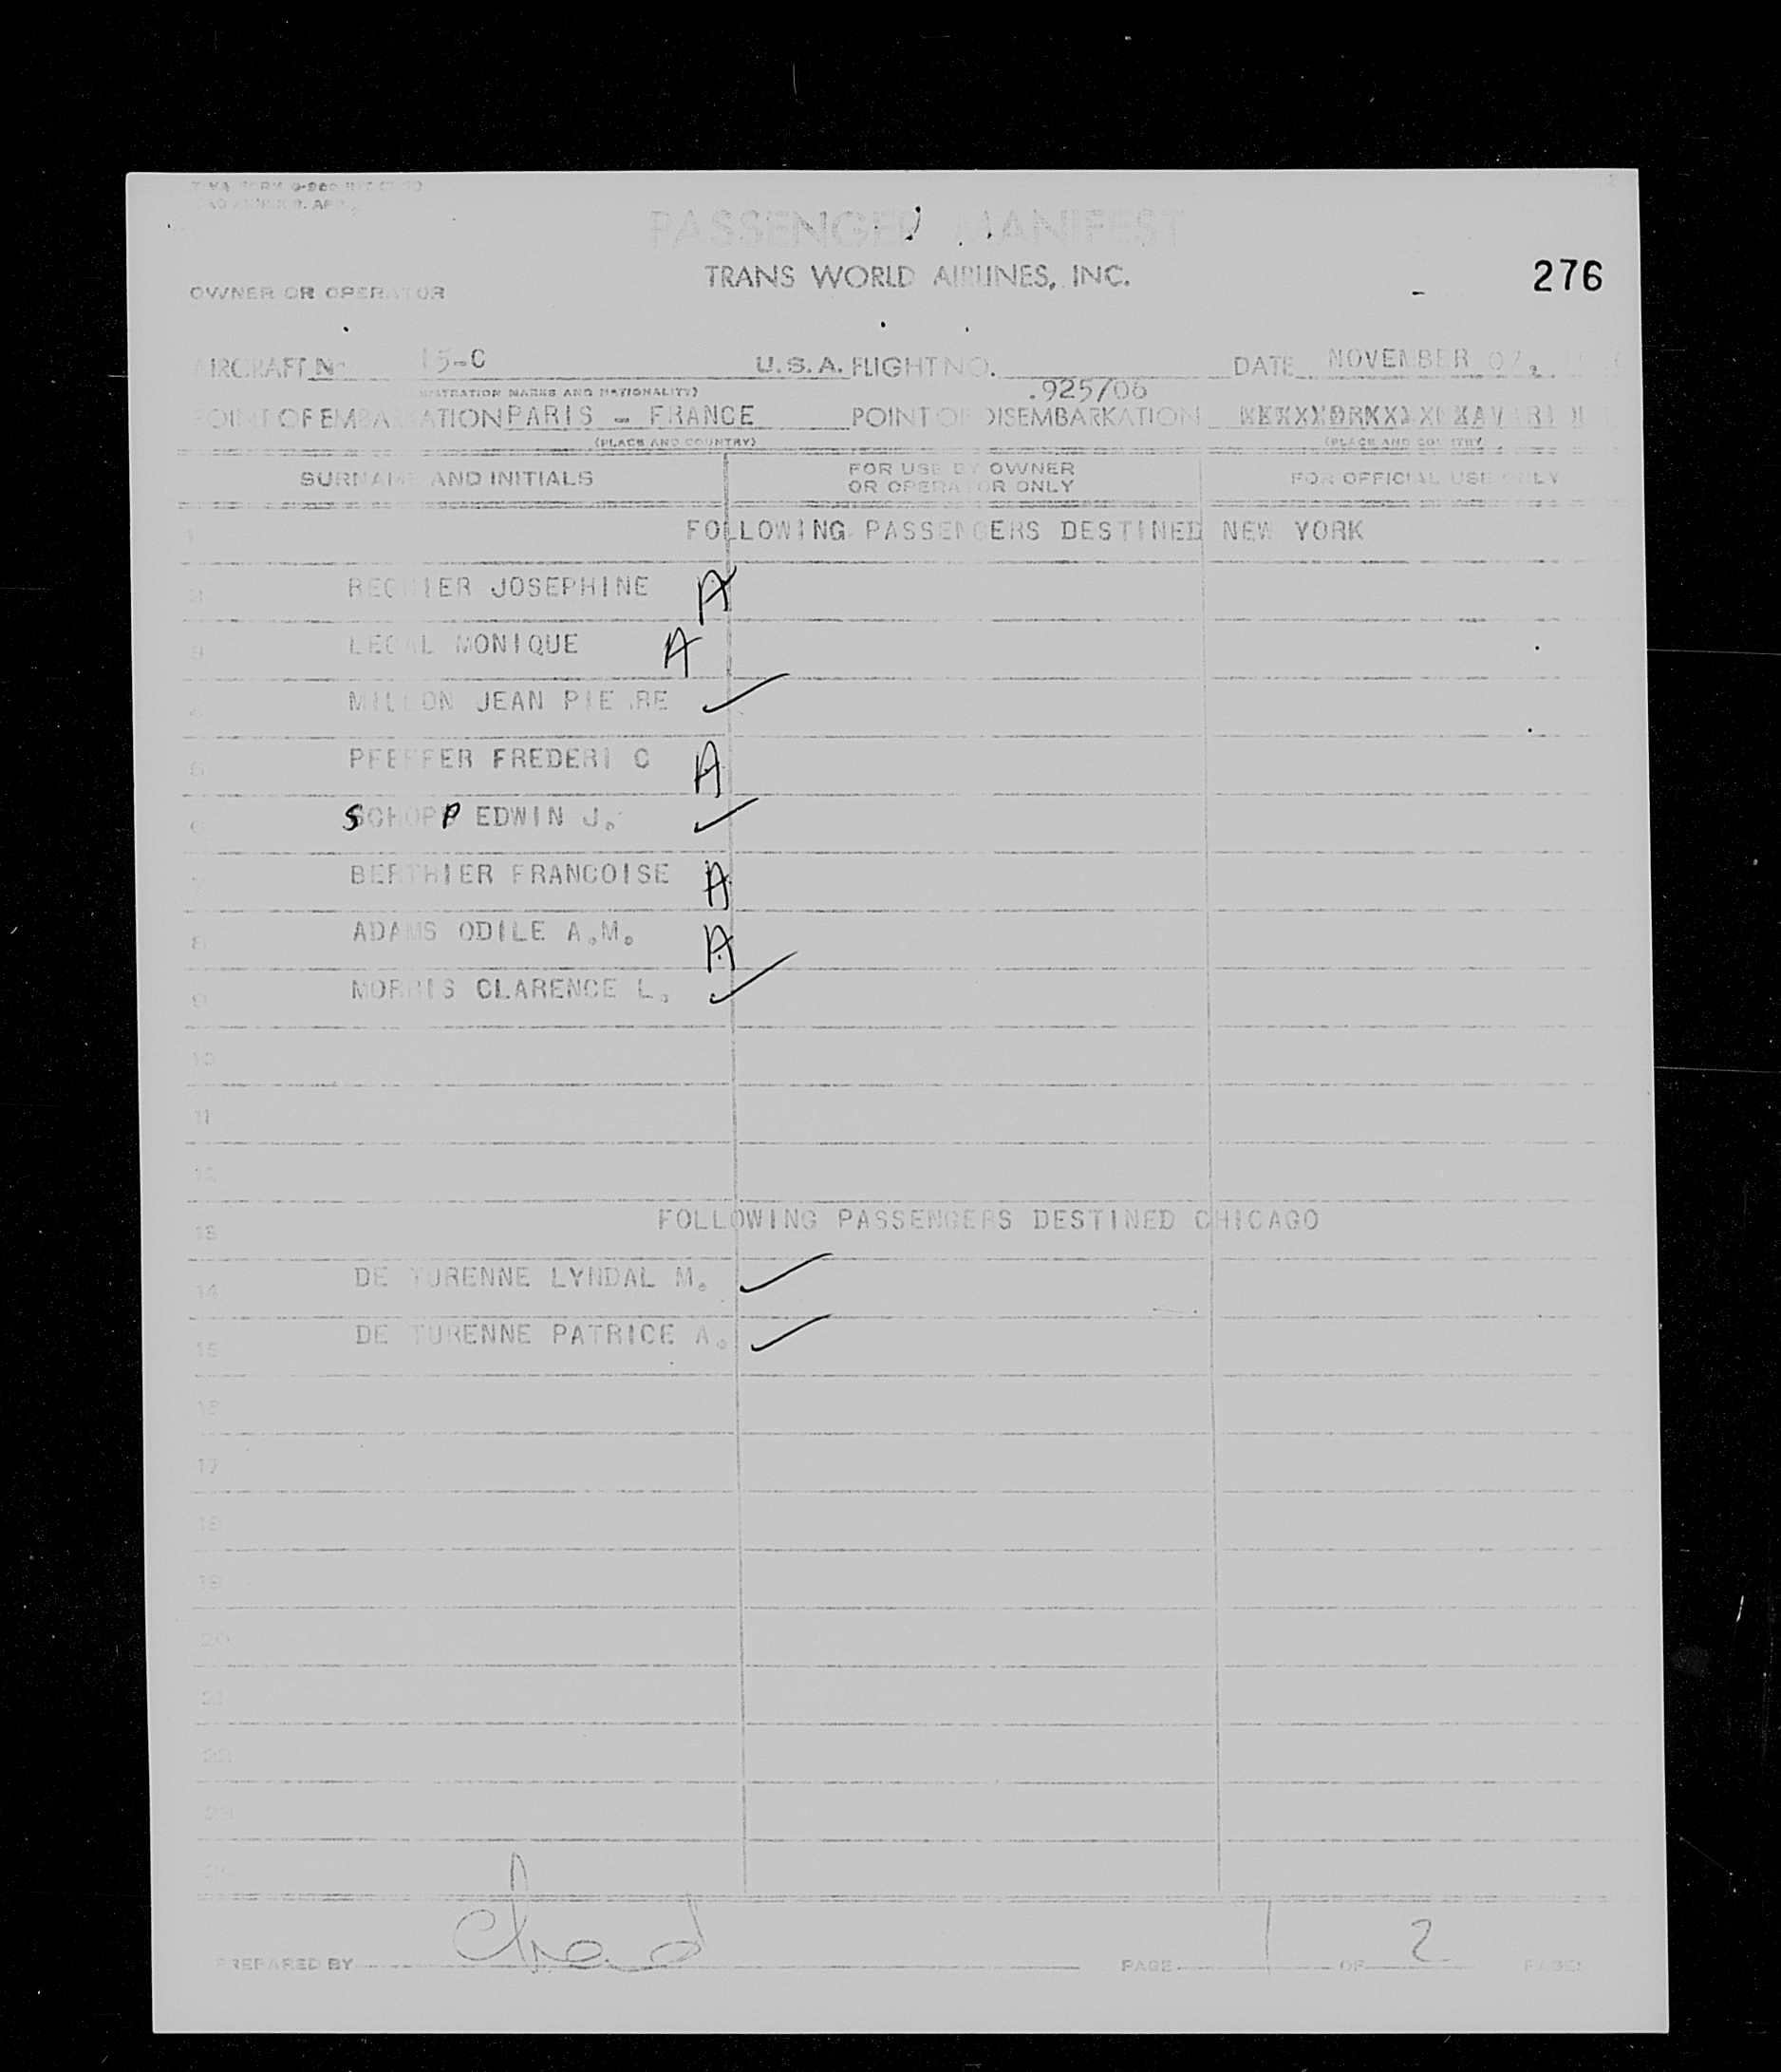 PASSENGER MANIFEST
TRANS WORLD AIRLINES, INC.
276
OWNER OR OPERATOR
AIRCRAFT No 15-C U.S.A. FLIGHT NO. 925/06 DATE NOVEMBER 07,
MARKS AND NATIONALITY)
POINT OF EMBARKATION PARIS - FRANCE POINT OF DISEMBARKATION
(PLACE AND COUNTRY) (PLACE AND COUNTRY)
SURNAME AND INITIALS FOR USE BY OWNER OR OPERATOR ONLY FOR OFFICIAL USE ONLY
1 FOLLOWING PASSENGERS DESTINED NEW YORK
2 JOSEPHINE A
3 MONIQUE A
4 MILLON JEAN PIERRE ✓
5 PFEFFER FREDERI C A
6 SCHOPP EDWIN J. ✓
7 BERTHIER FRANCOISE A
8 ADAMS ODILE A.M. A
9 MORRIS CLARENCE L. ✓
10
11
12
13 FOLLOWING PASSENGERS DESTINED CHICAGO
14 DE TURENNE LYNDAL M. ✓
15 DE TURENNE PATRICE A. ✓
16
17
18
19
20
21
22
23
24
PREPARED BY PAGE 1 OF 2 PAGES